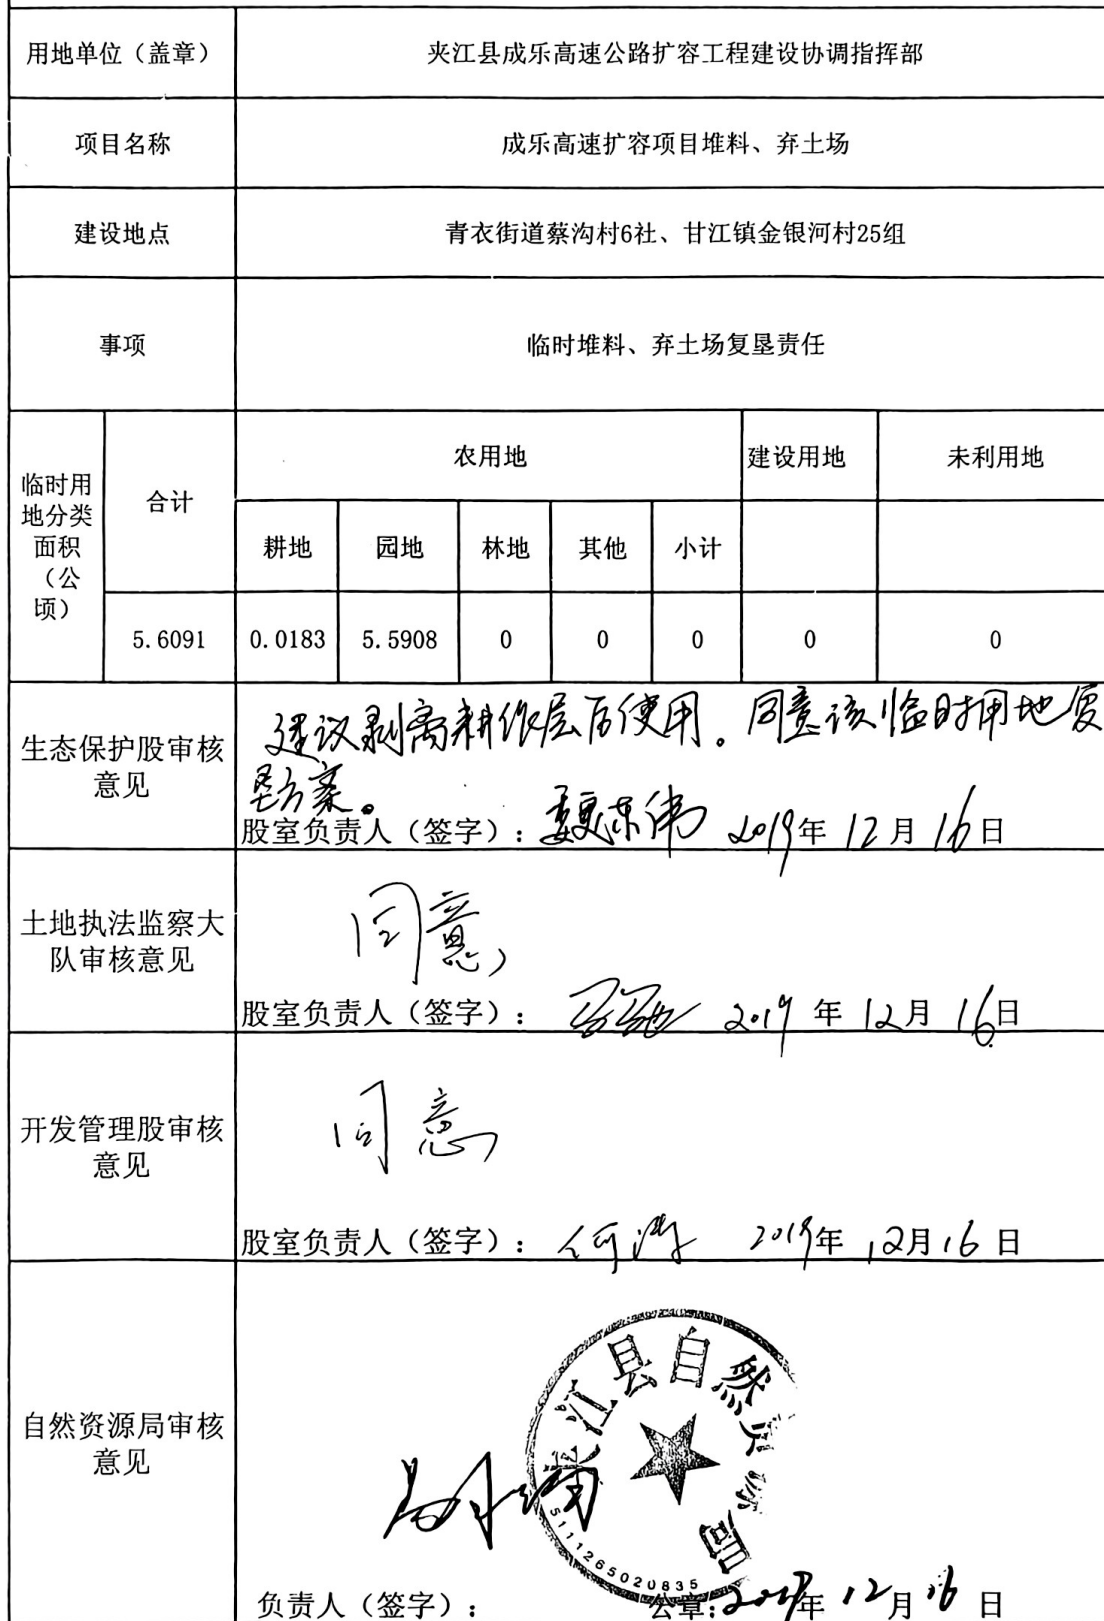 用地单位（盖章） 夹江县成乐高速公路扩容工程建设协调指挥部
项目名称 成乐高速扩容项目堆料、弃土场
建设地点 青衣街道蔡沟村6社、甘江镇金银河村25组
事项 临时堆料、弃土场复垦责任
临时用
地分类
面积
（公
顷）
合计
农用地 建设用地 未利用地
耕地 园地 林地 其他 小计
5.6091 0.0183 5.5908 0 0 0 0 0
生态保护股审核
意见
建议剥离耕作层后使用。同意该临时用地复
垦方案。
股室负责人（签字）： 2019年12月16日
土地执法监察大
队审核意见
同意
股室负责人（签字）： 2019年12月16日
开发管理股审核
意见
同意
股室负责人（签字）：何涛 2019年12月16日
自然资源局审核
意见
夹江县自然资源局
5111265020835
负责人（签字）： 公章：2019年12月16日